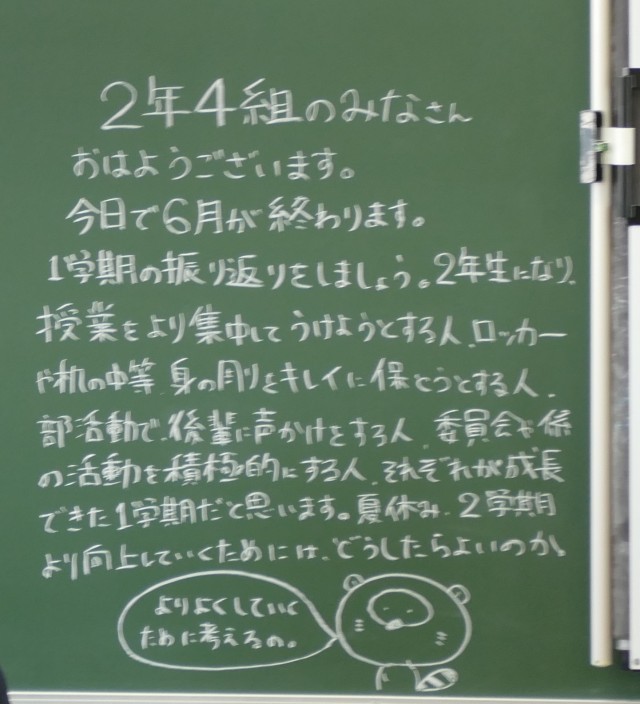 2年4組のみなさん
おはようございます。
今日で6月が終わります。
1学期の振り返りをしましょう。2年生になり、
授業をより集中してうけようとする人、ロッカー
や机の中等 身の周りをキレイに保とうとする人、
部活動で、後輩に声かけをする人、委員会や係
の活動を積極的にする人、それぞれが成長
できた1学期だと思います。夏休み、2学期
より向上していくためには、どうしたらよいのか。
よりよくしていく
ために考えるの。